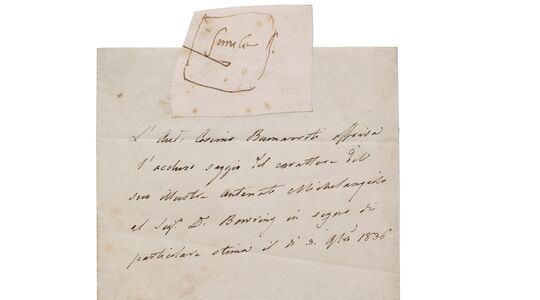 Simile
L'Aud.r Cosimo Buonarroti offriva
l'accluso saggio del carattere del
suo illustre Antenato Michelangelo
al Sig.r D.r Bowring in segno di
particolare stima il dì 3 9bre 1836